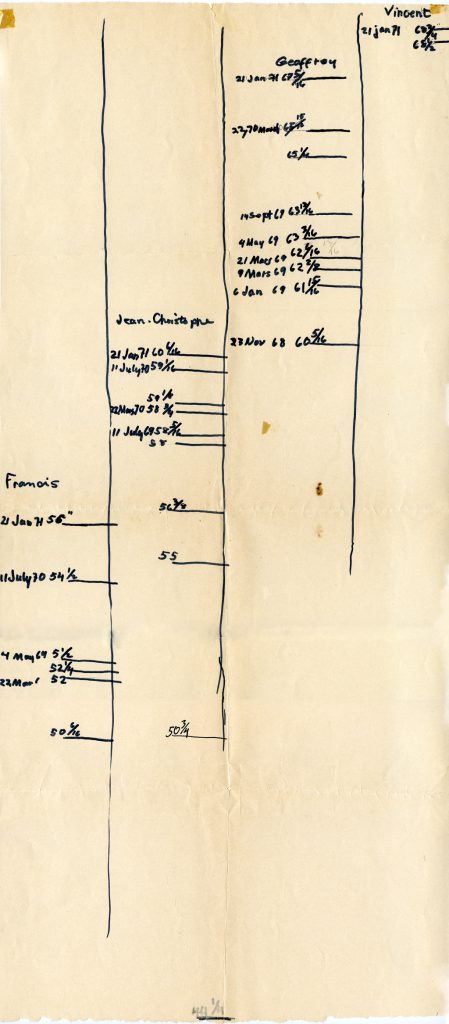 Vincent
21 jan 71 68 3/4
65 1/2
Geoffroy
21 Jan 71 67 5/16
65 15/16
65 1/16
14 Sept 69 63 13/16
4 May 69 63 3/16
21 Mars 69 62 9/16
9 Mars 69 62 2/8
6 Jan 69 61 15/16
23 Nov 68 60 5/16
Jean-Christophe
21 Jan 71 60 6/16
11 July 70 59 1/16
59 1/16
58 3/4
11 July 69 58 5/16
58
56 3/8
55
50 3/4
Francis
21 Jan 71 56"
11 July 70 54 1/2
4 May 69 5 1/2
52 1/4
52
50 6/16